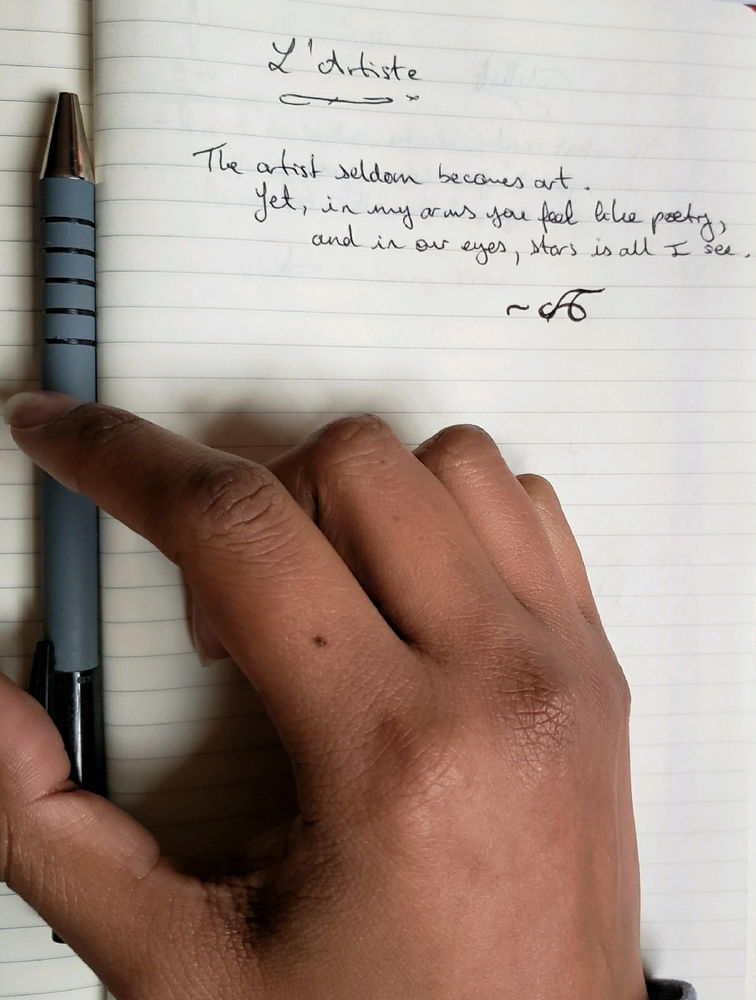 L'Artiste
The artist seldom becomes art.
Yet, in my arms you feel like poetry,
and in our eyes, stars is all I see.